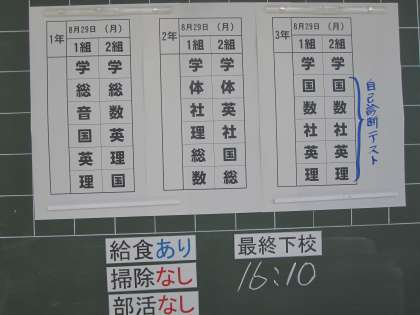 1年 8月29日 (月)
1組 2組
学 学
総 総
音 数
国 英
英 理
理 国
2年 8月29日 (月)
1組 2組
学 学
体 体
社 英
理 社
総 国
数 総
3年 8月29日 (月)
1組 2組
学 学
国 国
数 数
社 社
英 英
理 理
自己診断テスト
給食あり
掃除なし
部活なし
最終下校
16:10